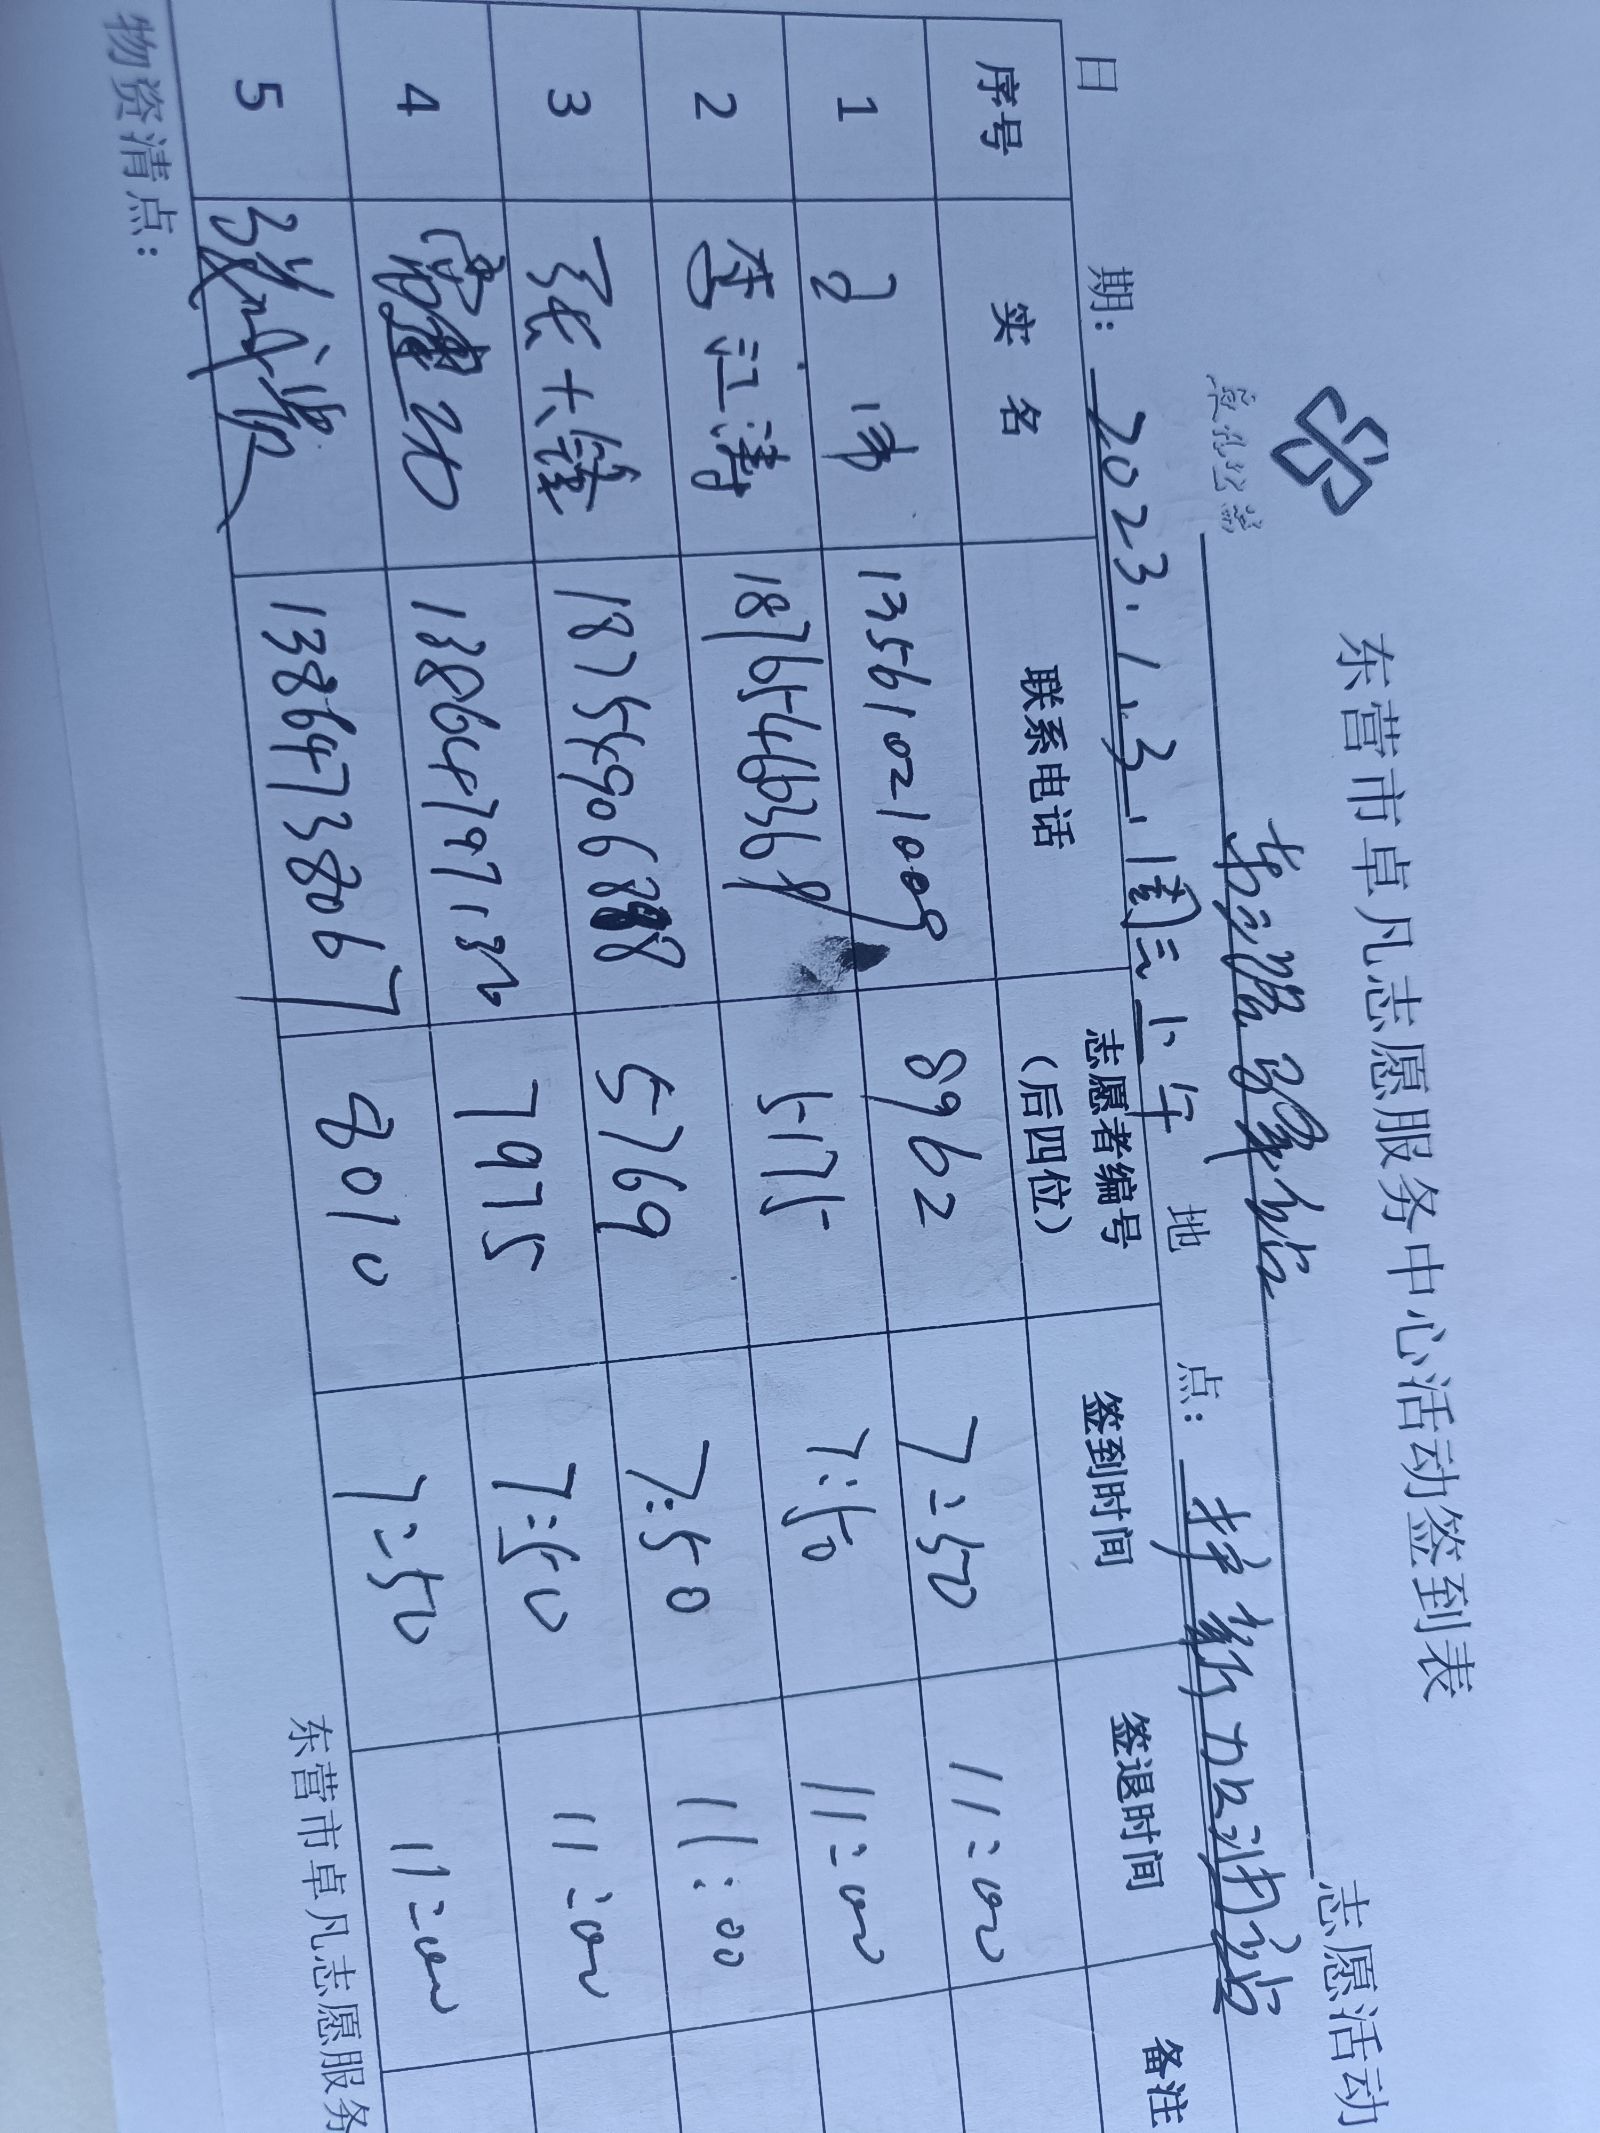 东营市卓凡志愿服务中心活动签到表
志愿活动
日 期: 2023.1.3.周二上午 地 点: 加油站
序号 实名 联系电话 志愿者编号（后四位） 签到时间 签退时间 备注
1 13561021009 8962 7:50 11:00
2 李江涛 18765466368 5175 7:50 11:00
3 张大锋 5769 7:50 11:00
4 13864797132 7975 7:50 11:00
5 13864738067 8010 7:50 11:00
物资清点：
东营市卓凡志愿服务